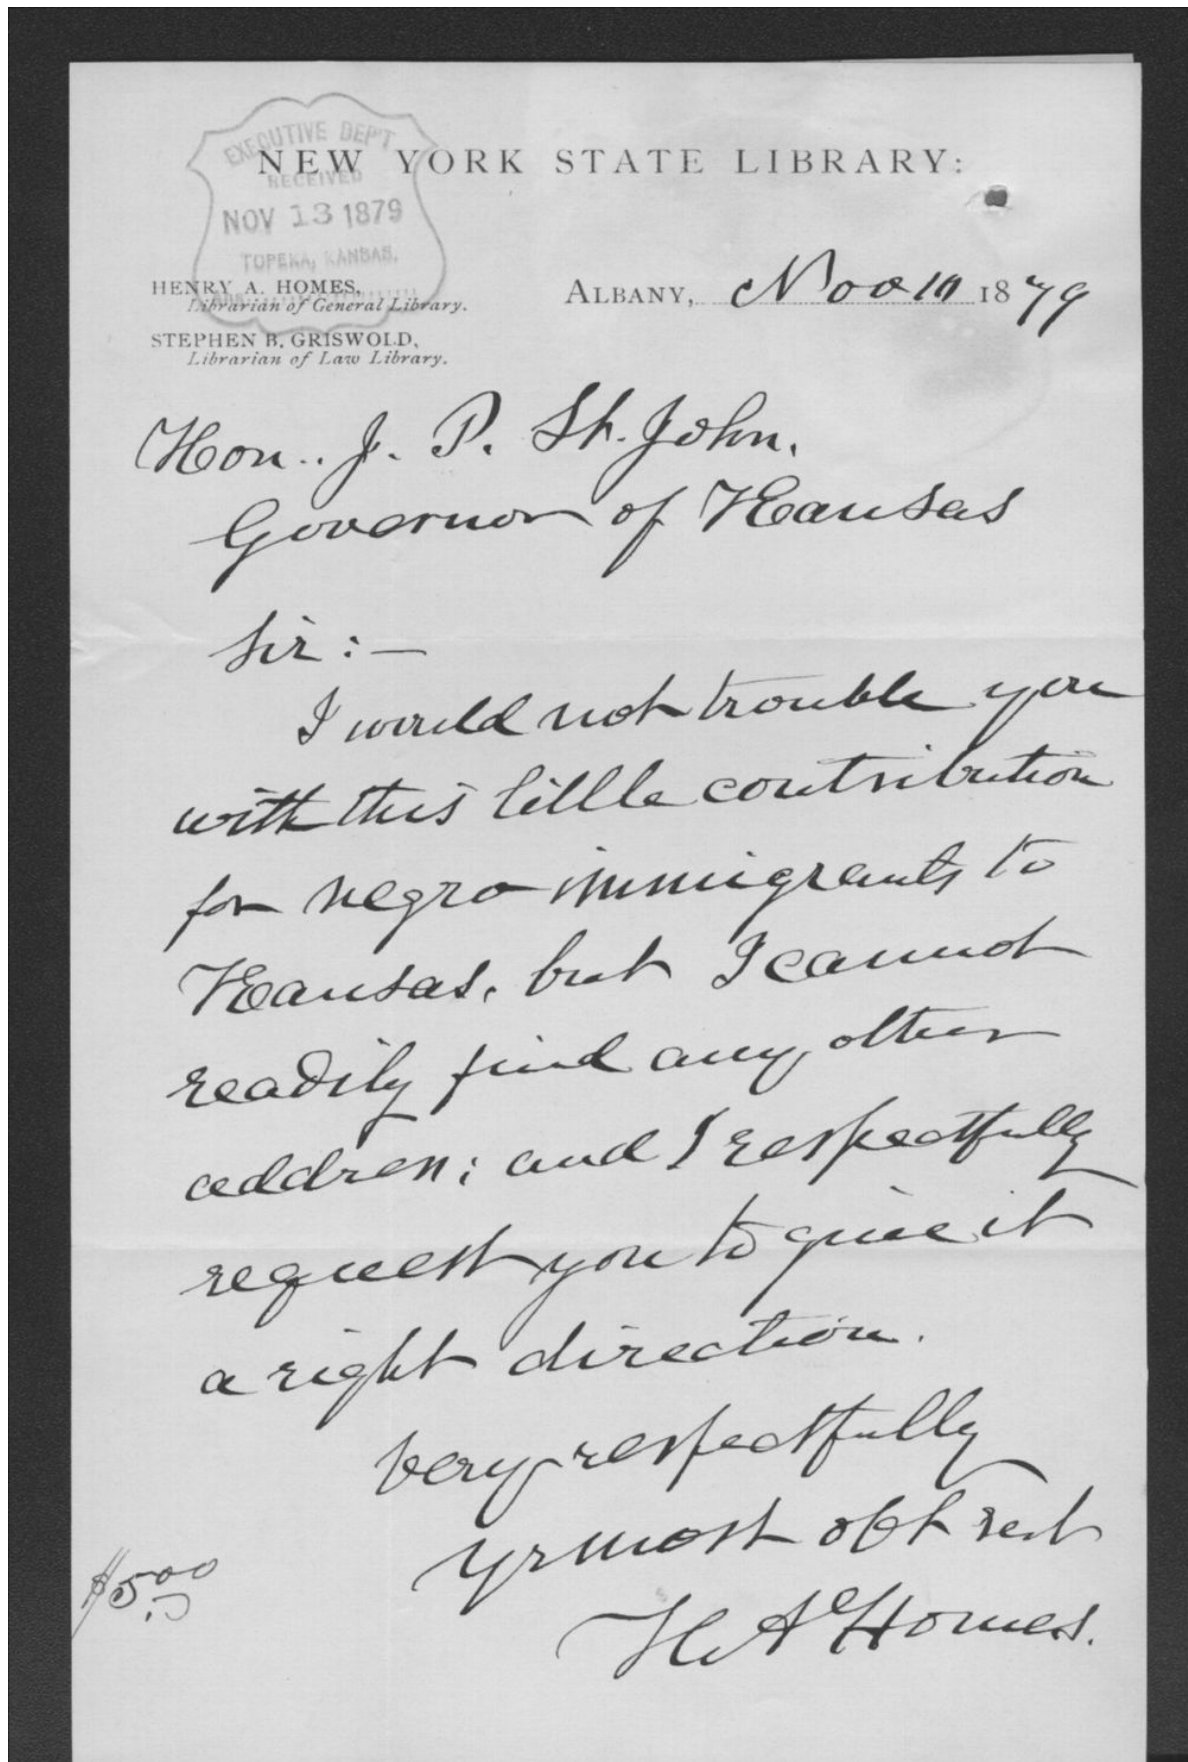 EXECUTIVE DEP'T
RECEIVED
NOV 13 1879
TOPEKA, KANSAS.
NEW YORK STATE LIBRARY:
HENRY A. HOMES,
Librarian of General Library.
STEPHEN B. GRISWOLD,
Librarian of Law Library.
ALBANY, Nov 10 1879
Hon. J. P. St. John.
Governor of Kansas
Sir:—
I would not trouble you
with this little contribution
for negro immigrants to
Kansas, but I cannot
readily find any other
address; and I respectfully
request you to give it
a right direction.
Very respectfully
yr most obt sevt
H A Homes.
$5.00